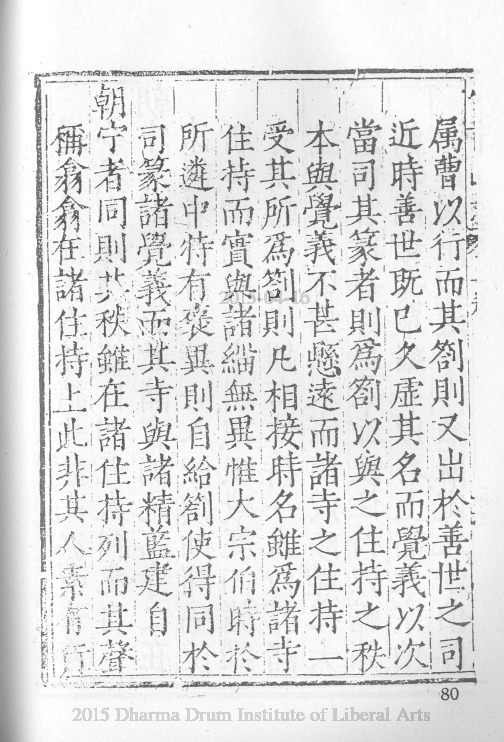 属曹以行而其劄則又出於善世之司
近時善世既已久虛其名而覺義以次
當司其篆者則為劄以與之住持之秩
本與覺義不甚懸遠而諸寺之住持一
受其所為劄則凡相接時名雖為諸寺
住持而實與諸緇無異惟大宗伯時於
所遴中特有褒異則自給劄使得同於
司篆諸覺義而其寺與諸精藍建自
朝宁者同則其秩雖在諸住持列而其聲
稱翕翕在諸住持上此非其人素有
80
2015-04-16
2015 Dharma Drum Institute of Liberal Arts